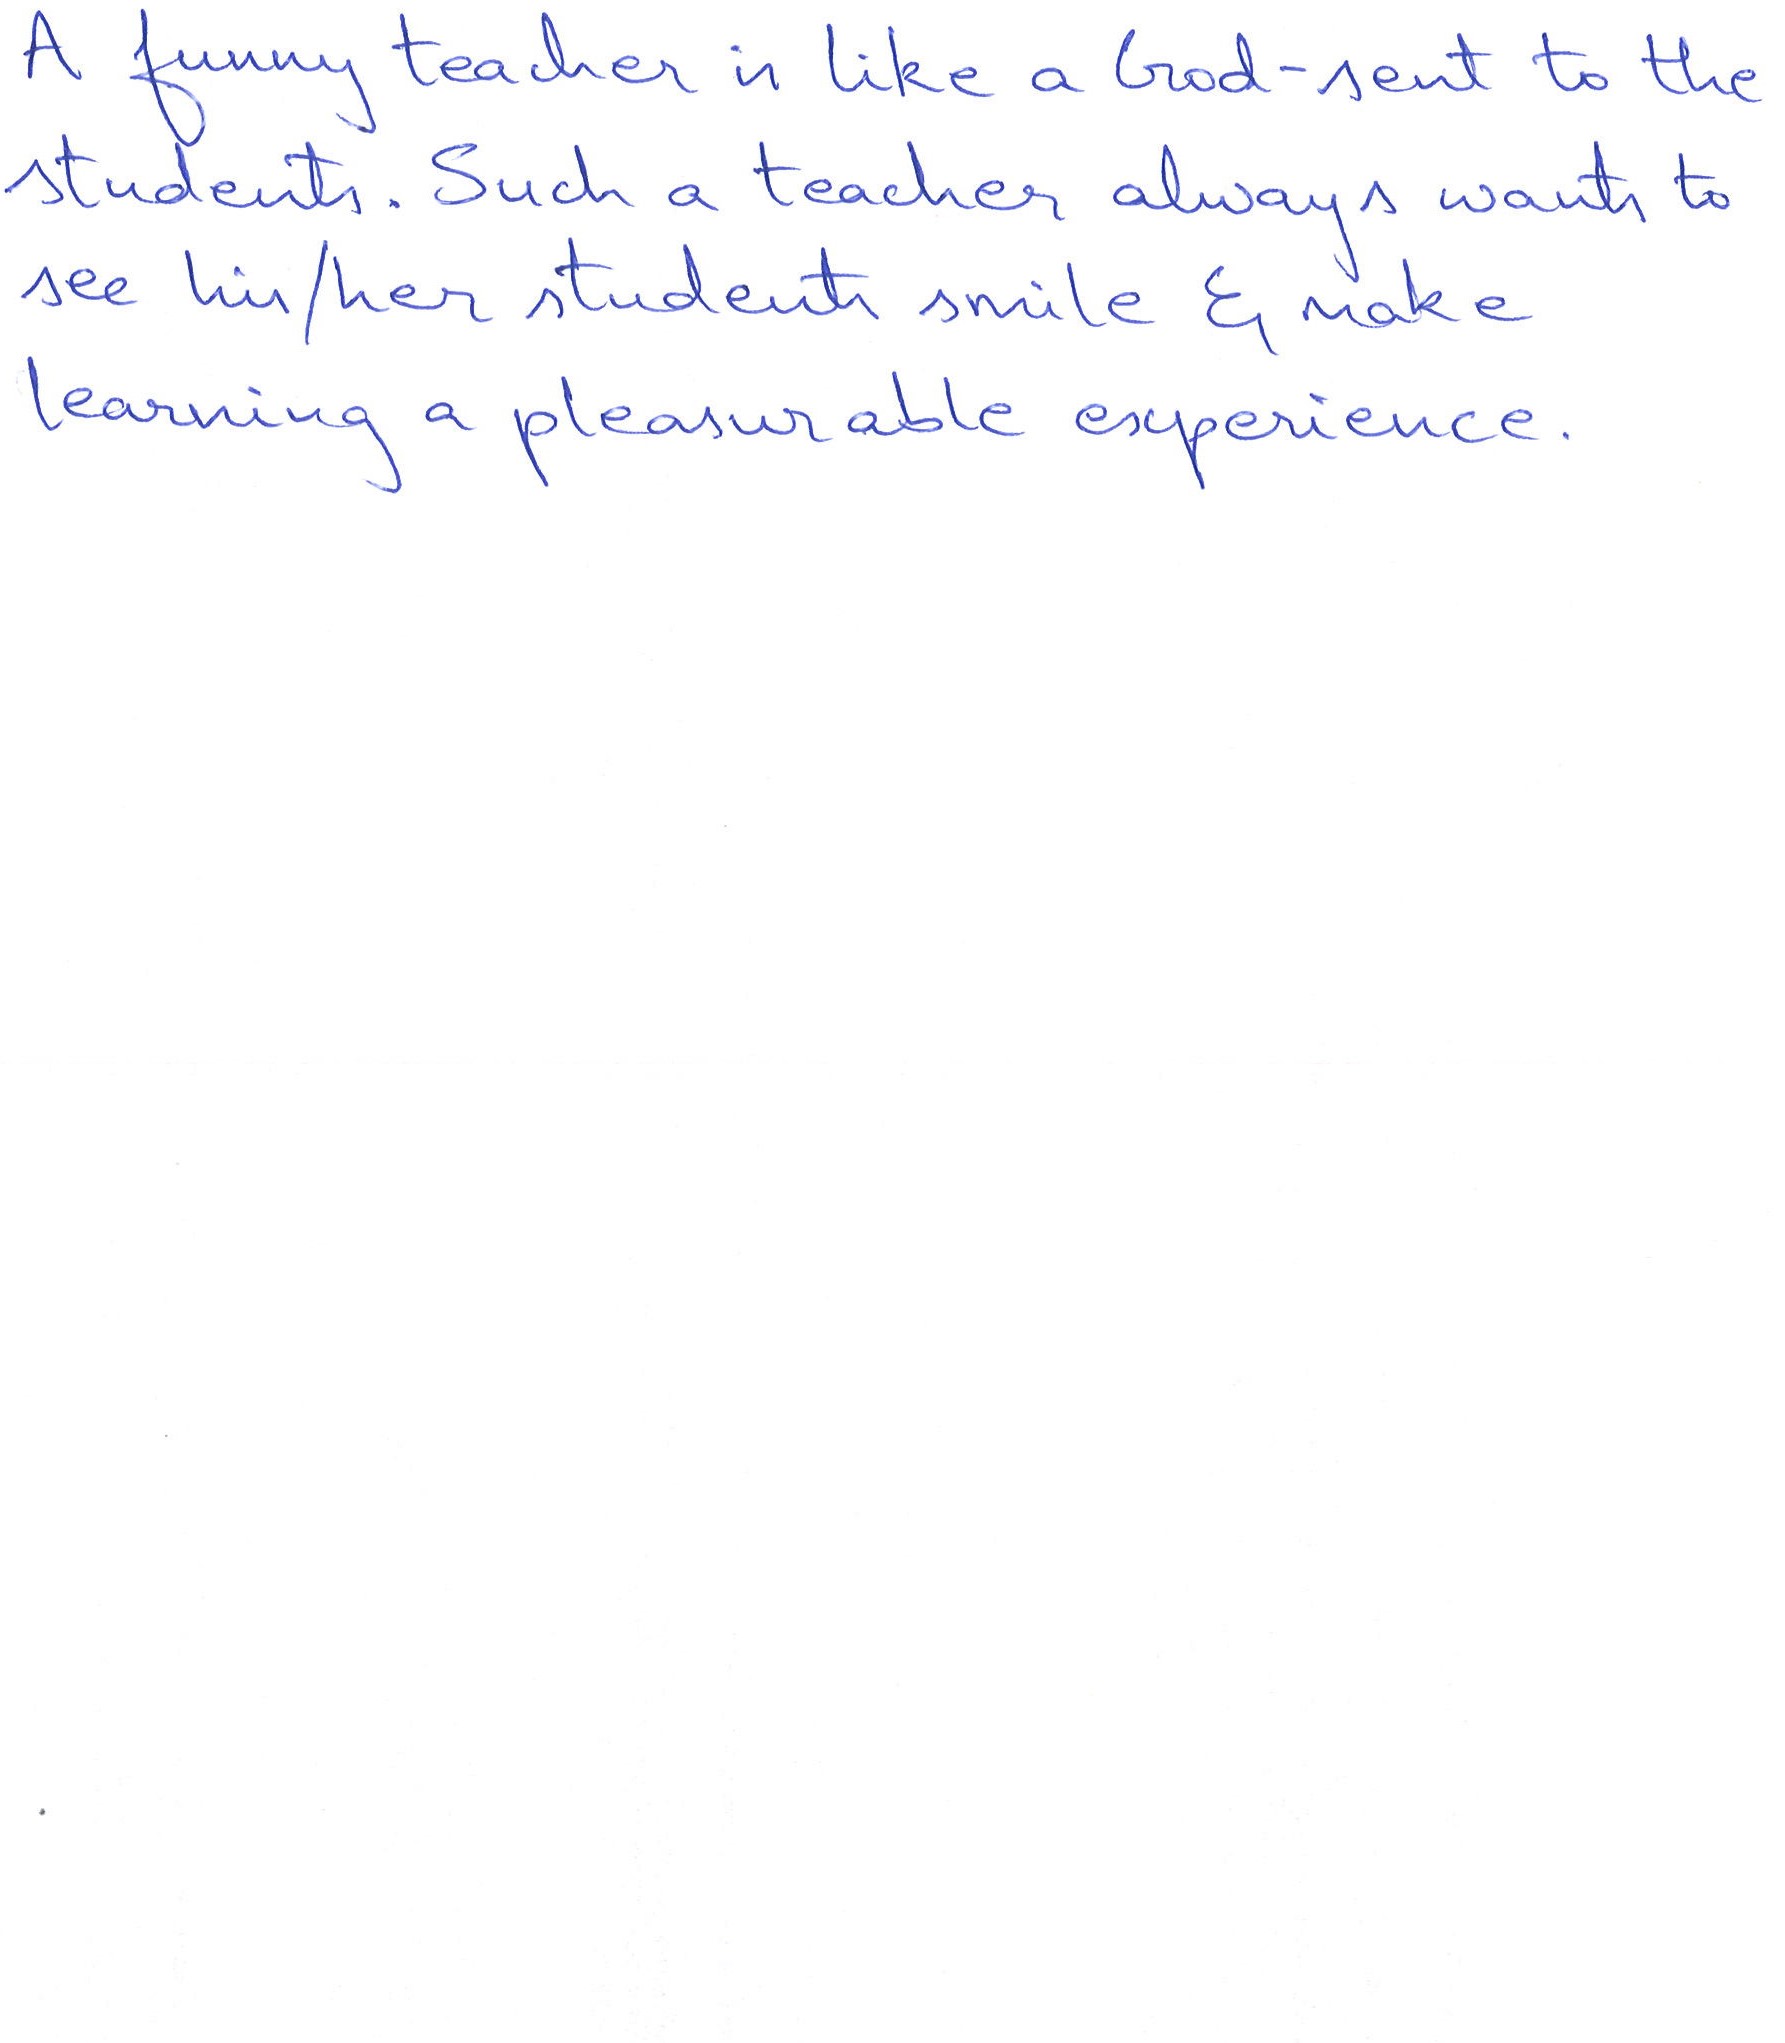 A funny teacher is like a God-sent to the
students. Such a teacher always wants to
see his/her students smile & make
learning a pleasurable experience.